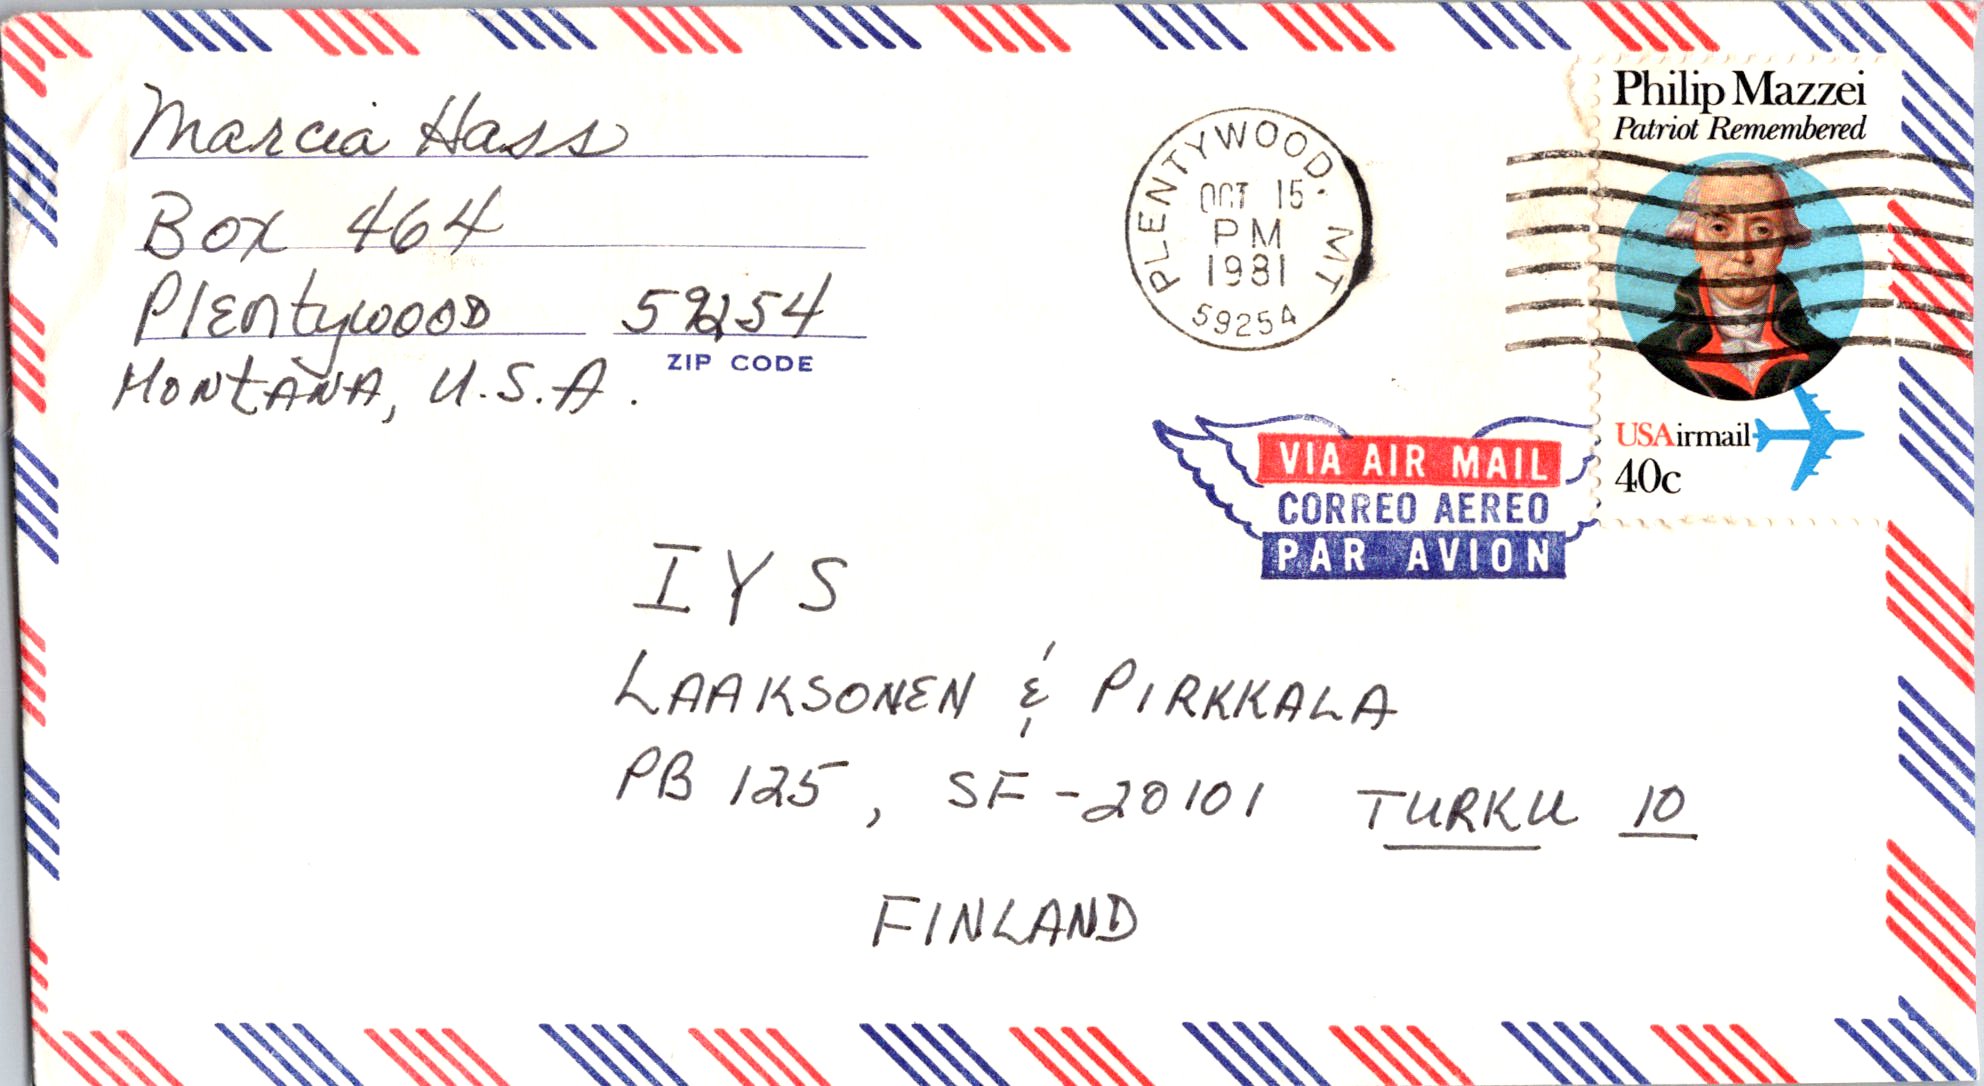 Marcia Hass
Box 464
Plentywood 59254
ZIP CODE
Montana, U.S.A.
PLENTYWOOD, MT
OCT 15
PM
1981
59254
Philip Mazzei
Patriot Remembered
USAirmail
40c
VIA AIR MAIL
CORREO AEREO
PAR AVION
IYS
LAAKSONEN & PIRKKALA
PB 125, SF-20101 TURKU 10
FINLAND